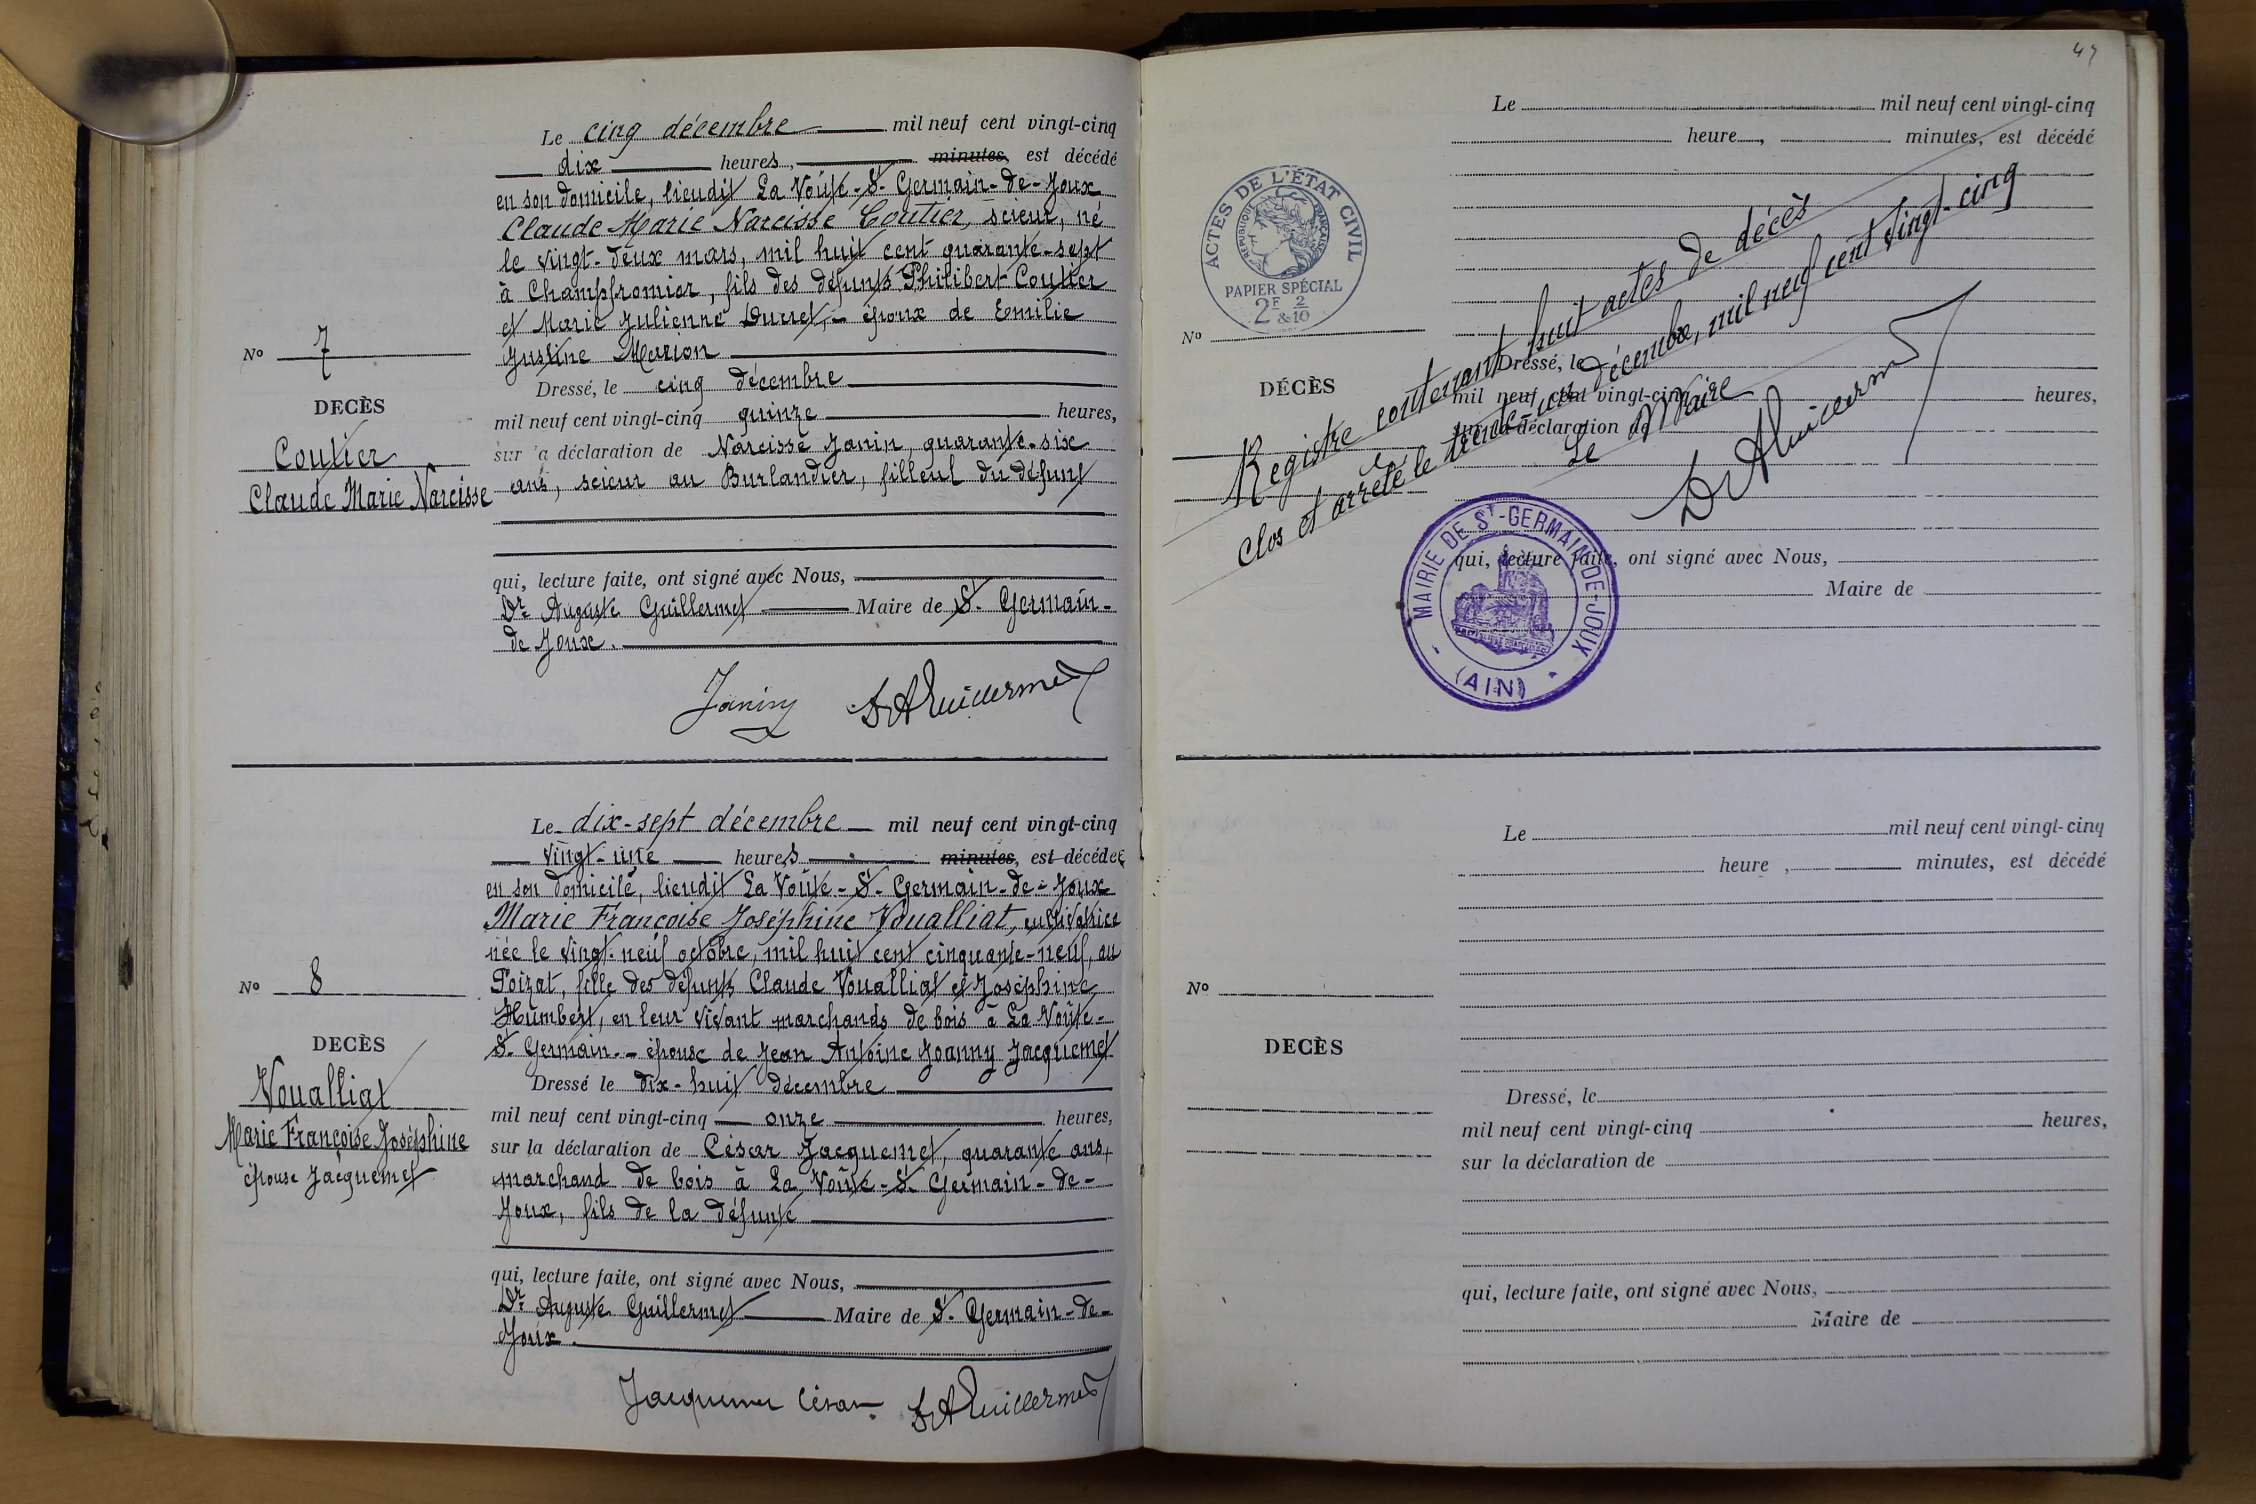 Le cinq décembre mil neuf cent vingt-cinq
dix heures, minutes, est décédé
en son domicile, lieudit La Voûte-St-Germain-de-Joux
Claude Marie Narcisse Coutier, scieur, né
le vingt-deux mars, mil huit cent quarante-sept
à Champfromier, fils des défunts Philibert Coutier
et Marie Julienne Ducret, - époux de Emilie
Justine Marion
Dressé, le cinq décembre
mil neuf cent vingt-cinq quinze heures,
sur la déclaration de Narcisse Janin, quarante-six
ans, scieur au Burlandier, filleul du défunt
qui, lecture faite, ont signé avec Nous,
Dr Auguste Guillermet Maire de St-Germain-
de-Joux.
Janin Dr A Guillermet
No 7
DECÈS
Coutier
Claude Marie Narcisse
Le dix-sept décembre mil neuf cent vingt-cinq
vingt-une heures minutes, est décédée
en son domicile, lieudit La Voûte-St-Germain-de-Joux
Marie Françoise Joséphine Voualliat, cultivatrice
née le vingt-neuf octobre, mil huit cent cinquante-neuf, au
Poizat, fille des défunts Claude Voualliat et Joséphine
Humbert, en leur vivant marchands de bois à La Voûte-
St-Germain. - épouse de Jean Antoine Joanny Jacquemet
Dressé le dix-huit décembre
mil neuf cent vingt-cinq onze heures,
sur la déclaration de César Jacquemet, quarante ans,
marchand de bois à La Voûte-St-Germain-de-
Joux, fils de la défunte
qui, lecture faite, ont signé avec Nous,
Dr Auguste Guillermet Maire de St-Germain-de-
Joux.
Jacquemet César Dr A Guillermet
No 8
DECÈS
Voualliat
Marie Françoise Joséphine
épouse Jacquemet
Le mil neuf cent vingt-cinq
heure, minutes, est décédé
ACTES DE L'ÉTAT CIVIL
RÉPUBLIQUE FRANÇAISE
PAPIER SPÉCIAL
2F 2
&10
No
DÉCÈS
Dressé, le
mil neuf cent vingt-cinq heures,
sur la déclaration de
qui, lecture faite, ont signé avec Nous,
Maire de
Registre contenant huit actes de décès
clos et arrêté le trente-un décembre, mil neuf cent vingt-cinq
Le Maire
Dr A Guillermet
MAIRIE DE St-GERMAIN-DE-JOUX
(AIN)
Le mil neuf cent vingt-cinq
heure, minutes, est décédé
No
DECÈS
Dressé, le
mil neuf cent vingt-cinq heures,
sur la déclaration de
qui, lecture faite, ont signé avec Nous,
Maire de